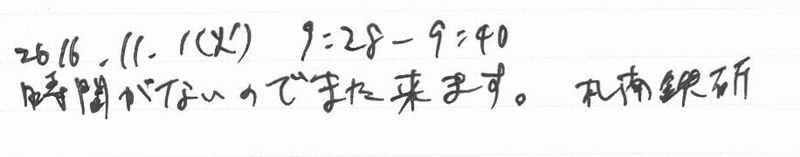 2016.11.1(火) 9:28-9:40
時間がないのでまた来ます。 札南鉄研